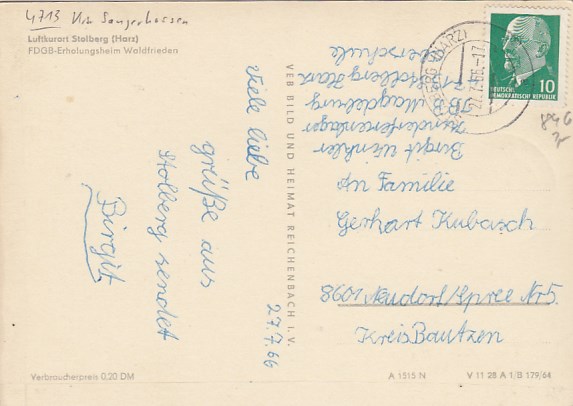 4713 Krs Sangerhausen
Luftkurort Stolberg (Harz)
FDGB-Erholungsheim Waldfrieden
viele liebe
grüße aus
Stolberg sendet
Birgit
27.7.66
VEB BILD UND HEIMAT REICHENBACH I. V.
Birgit Winkler
Kinderferienlager
Magdeburg
Stolberg Harz
Oberschule
DEUTSCHE
DEMOKRATISCHE REPUBLIK
10
27.7.66.-17
An Familie
Gerhart Kubasch
8601 Neudorf/Spree Nr5.
Kreis Bautzen
Verbraucherpreis 0,20 DM
A 1515 N
V 11 28 A 1/B 179/64